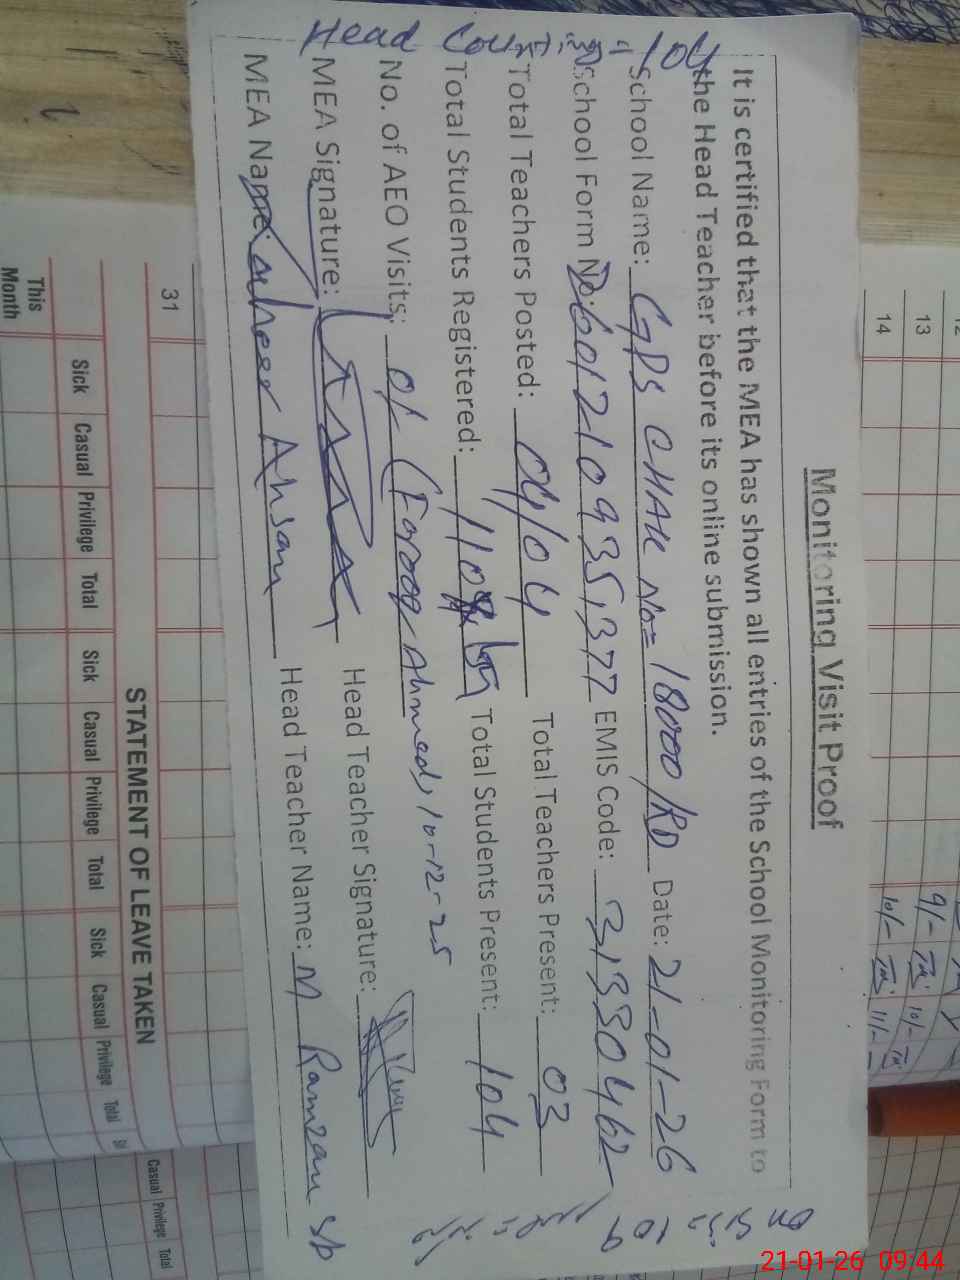 Monitoring Visit Proof
It is certified that the MEA has shown all entries of the School Monitoring Form to
the Head Teacher before its online submission.
Head Counting = 104
School Name: GPS CHAK No= 18000/RD Date: 21-01-26
School Form No: 601210935,377 EMIS Code: 31330462
Total Teachers Posted: 04/04 Total Teachers Present: 03
Total Students Registered: 110 Total Students Present: 104
No. of AEO Visits: 01 (Farooq Ahmed, 10-12-25
MEA Signature: Head Teacher Signature:
MEA Name: Ahsan Head Teacher Name: M Ramzan
12
13 9/- 10/-
14 10/- 11/-
31
STATEMENT OF LEAVE TAKEN
Sick Casual Privilege Total Sick Casual Privilege Total Sick Casual Privilege Total
Casual Privilege Total
This
Month
21-01-26 09:44